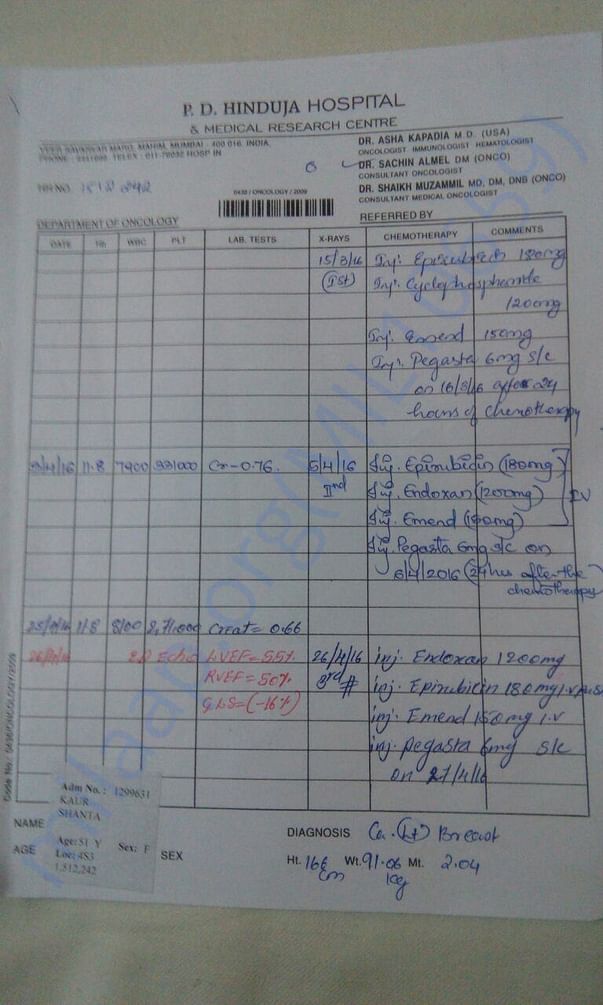 P. D. HINDUJA HOSPITAL
& MEDICAL RESEARCH CENTRE
VEER SAVARKAR MARG, MAHIM, MUMBAI - 400 016, INDIA.
PHONE : TELEX : 011-
DR. ASHA KAPADIA M.D. (USA)
ONCOLOGIST IMMUNOLOGIST HEMATOLOGIST
DR. SACHIN ALMEL DM (ONCO)
CONSULTANT ONCOLOGIST
DR. SHAIKH MUZAMMIL MD, DM, DNB (ONCO)
CONSULTANT MEDICAL ONCOLOGIST
HH NO.
0436 / ONCOLOGY / 2009
DEPARTMENT OF ONCOLOGY
REFERRED BY
DATE Hb WBC PLT LAB. TESTS X-RAYS CHEMOTHERAPY COMMENTS
15/3/16 Inj. Epirubicin 180mg
(Ist) Inj. Cyclophosphamide
1200mg
Inj. Emend 150mg
Inj. Pegasta 6mg s/c
on 16/3/16 after 24
hours of chemotherapy
/4/16 11.8 7900 Cr-0.76. 5/4/16 Inj. Epirubicin (180mg)
IInd Inj. Endoxan (1200mg) IV
Inj. Emend (150mg)
Inj. Pegasta 6mg s/c on
6/4/2016 (24hrs after the
chemotherapy
25/4/16 11.8 8100 2,71,000 Creat = 0.66
26/4/16 2D Echo LVEF = 55% 26/4/16 inj. Endoxan 1200mg
RVEF = 50% 3rd # inj. Epirubicin 180mg i.v
GLS = (-16%) inj. Emend 150mg I.V
inj. Pegasta 6mg s/c
on 27/4/16
Code No.: 0436/ONCOLOGY/2009
Adm No.: 1299631
KAUR
SHANTA
Age: 51 Y Sex: F
Loc: 4S3
1,512,242
NAME
AGE
SEX
DIAGNOSIS Ca. (Lt) Breast
Ht. 166 cm Wt. 91.06 kg Mt. 2.04
milaap.org